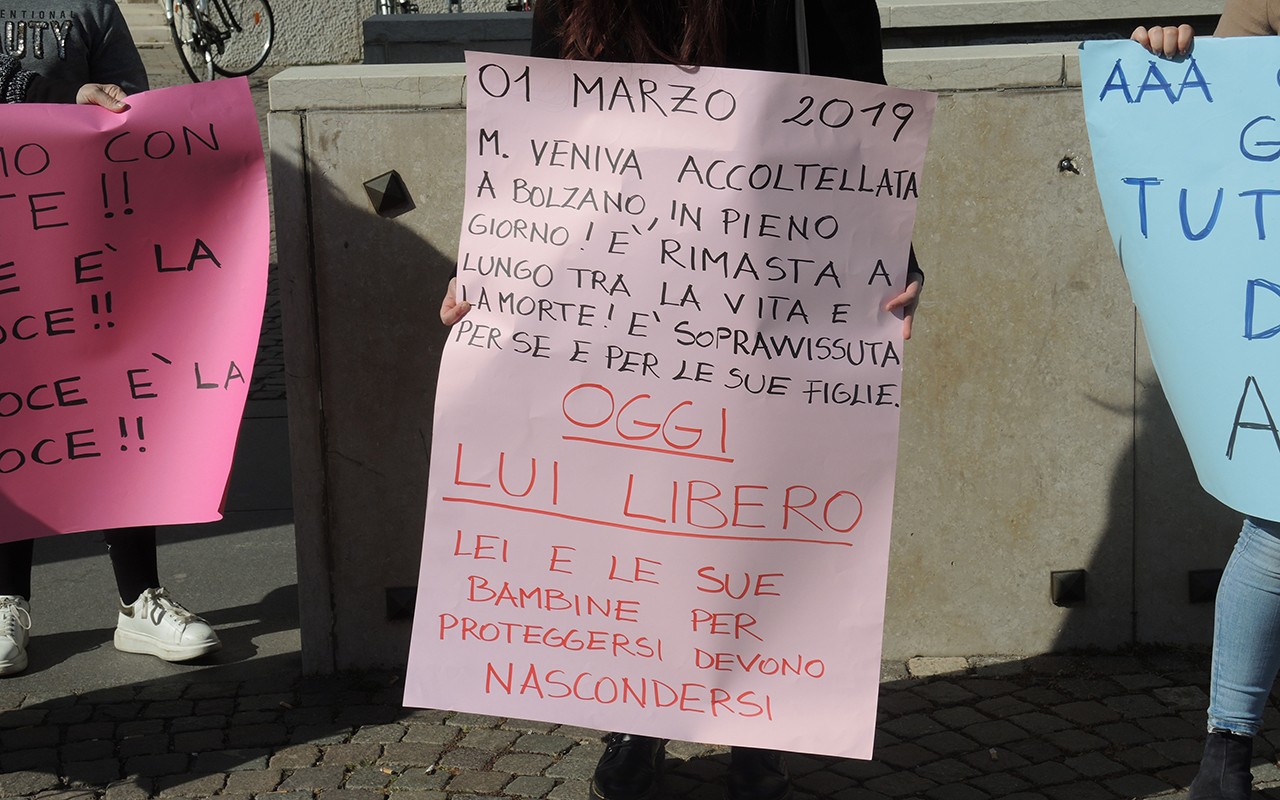 ENTIONAL
AUTY
CON
!!
E E` LA
OCE!!
OCE E` LA
OCE!!
01 MARZO 2019
M. VENIVA ACCOLTELLATA
A BOLZANO, IN PIENO
GIORNO! E` RIMASTA A
LUNGO TRA LA VITA E
LA MORTE! E` SOPRAVVISSUTA
PER SE E PER LE SUE FIGLIE.
OGGI
LUI LIBERO
LEI E LE SUE
BAMBINE PER
PROTEGGERSI DEVONO
NASCONDERSI
AAA
G
TUT
D
A